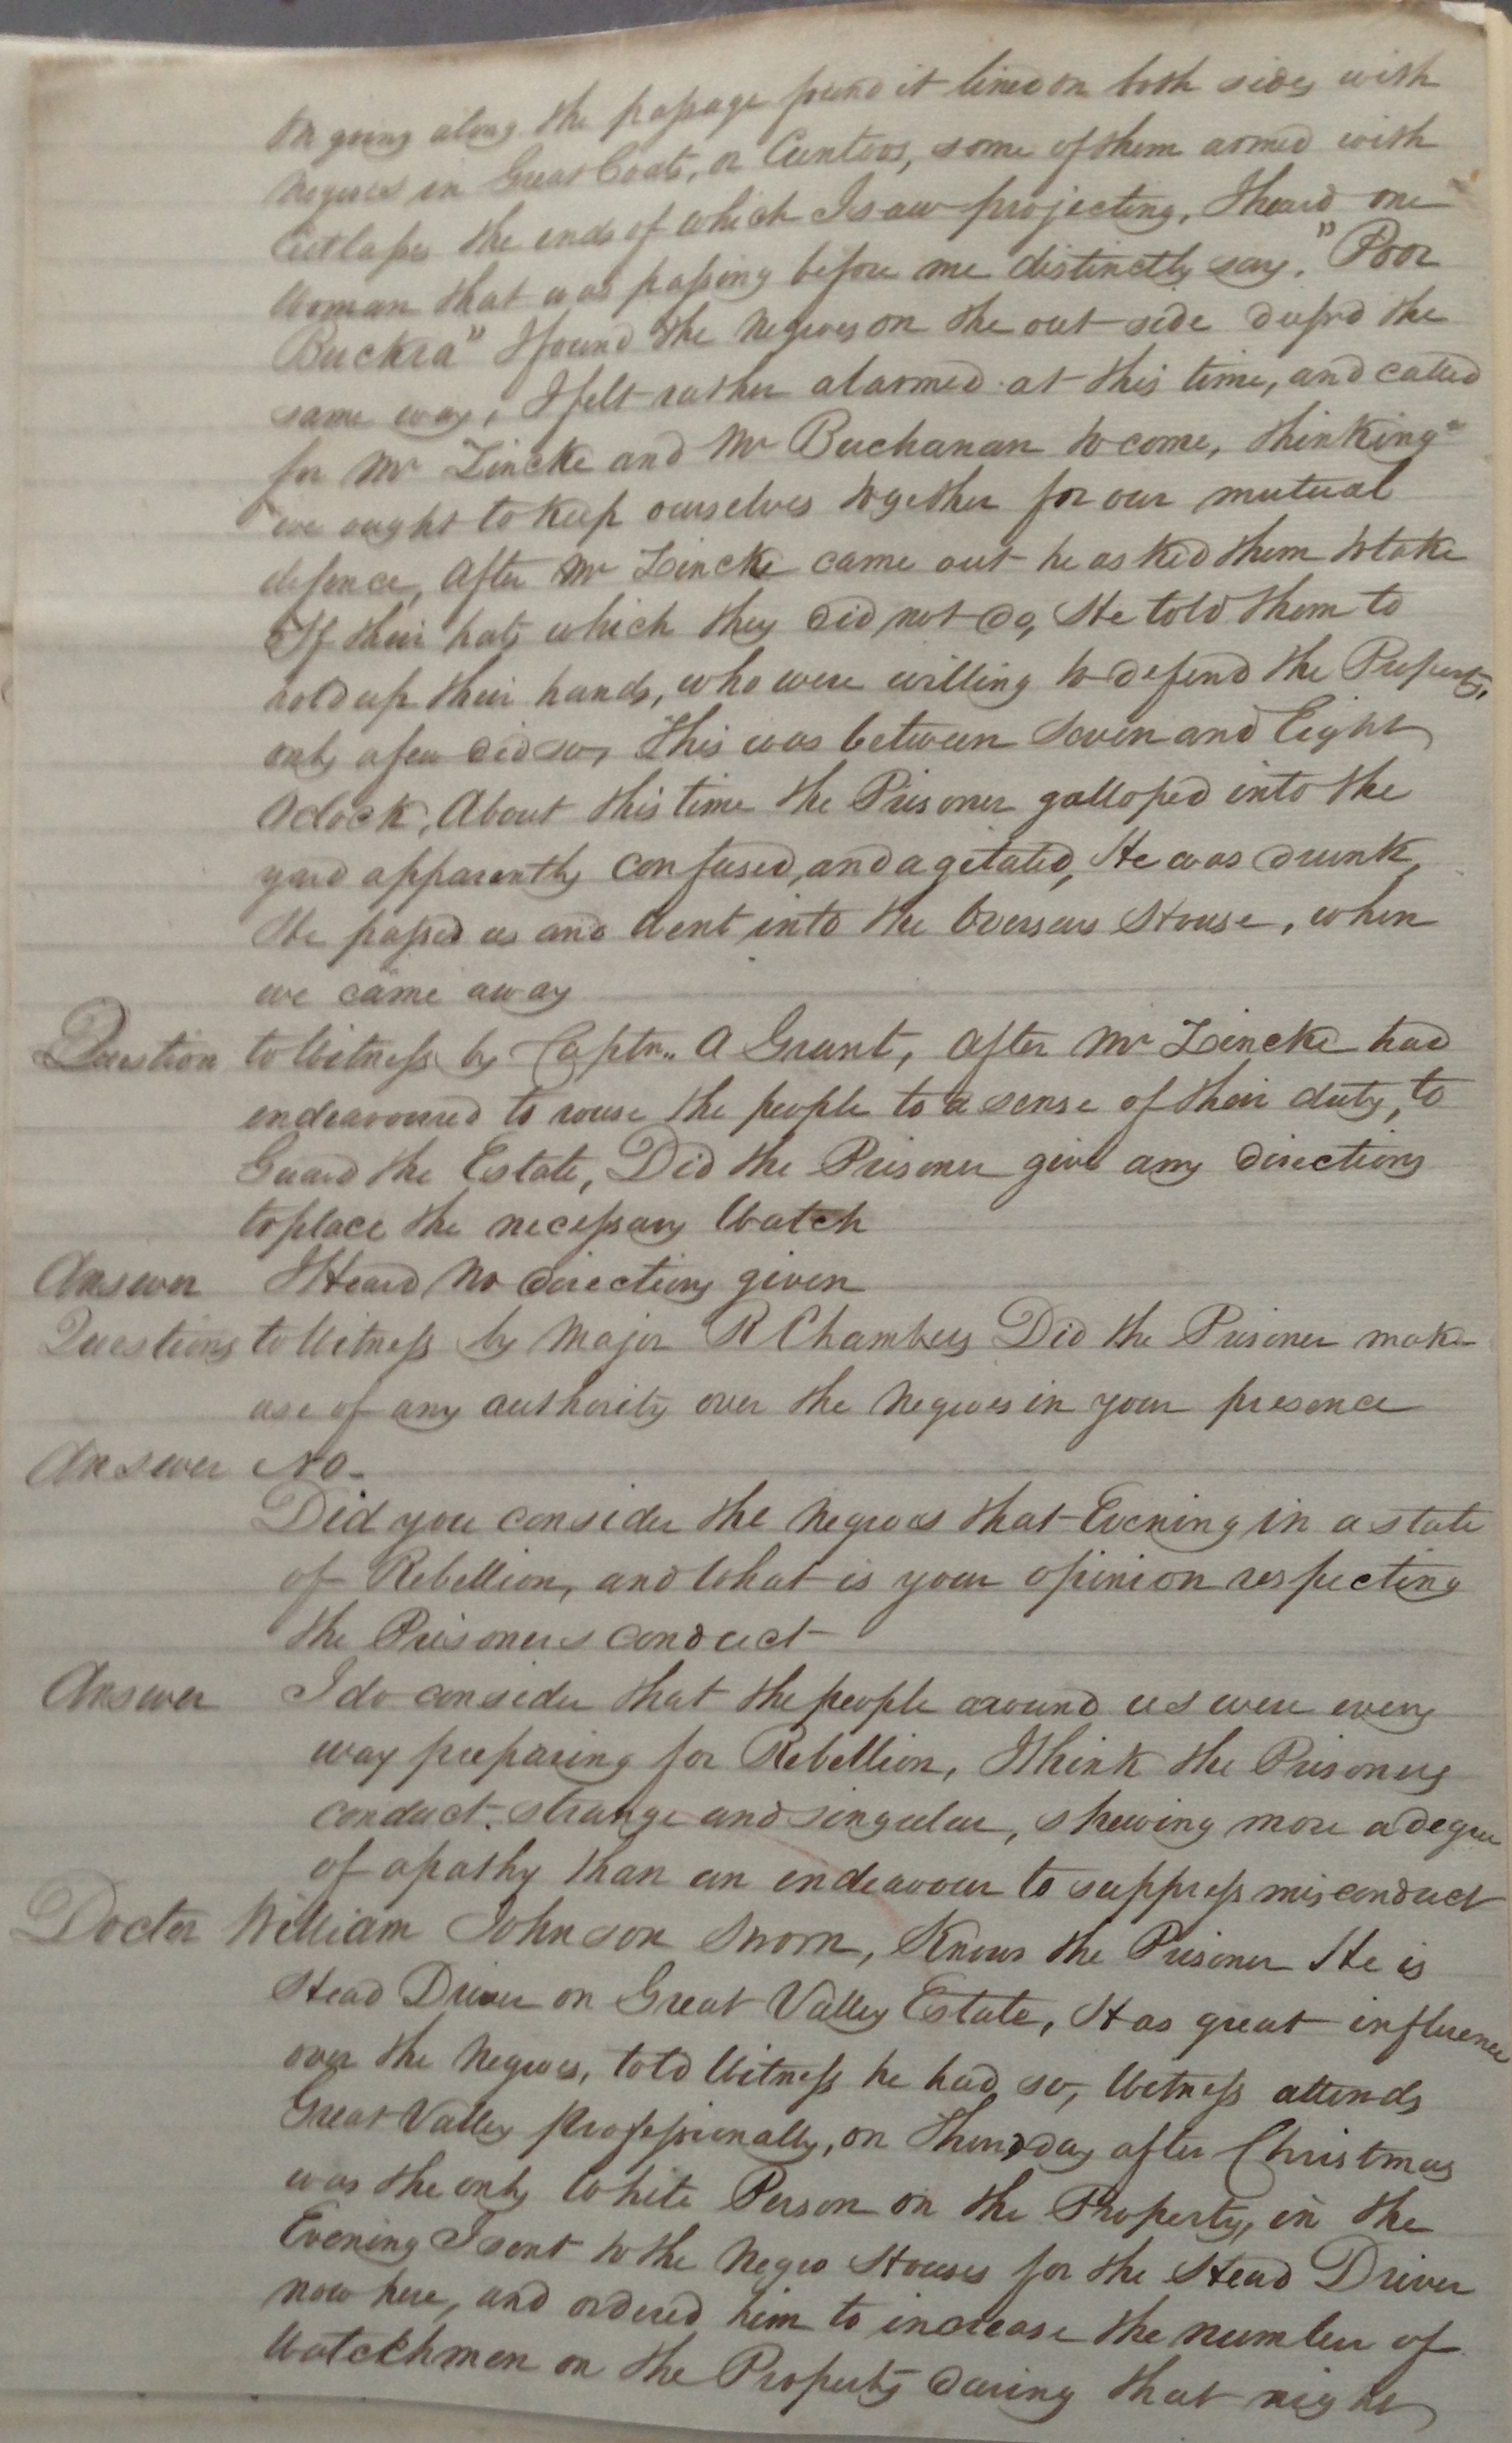 On going along the passage found it lined on both sides with
Negroes in Great Coats, or Contoos, some of them armed with
Cutlasses the ends of which I saw projecting, I heard one
Woman that was passing before me distinctly say, "Poor
Buckra" I found the Negroes on the out side dress'd the
same way, I felt rather alarmed at this time, and called
for Mr Zincke and Mr Buchanan to come, thinking
we ought to keep ourselves together for our mutual
defence, After Mr Zincke came out he asked them to take
off their hats which they did not do, He told them to
hold up their hands, who were willing to defend the Property,
only a few did so, This was between Seven and Eight
Oclock, About this time the Prisoner galloped into the
yard apparently confused, and agitated, He was drunk,
He passed us and Went into the Overseers House, when
we came away
Question to Witness by Captn. A Grant, After Mr Zincke had
endeavoured to rouse the people to a sense of their duty, to
Guard the Estate, Did the Prisoner give any directions
to place the necessary Watch
Answer I Heard No directions given
Questions to Witness by Major R Chambers Did the Prisoner make
use of any authority over the Negroes in your presence
Answer No-
Did you consider the Negroes that Evening in a state
of Rebellion, and What is your opinion respecting
the Prisoners conduct
Answer I do consider that the people around us were every
way preparing for Rebellion, I think the Prisoners
conduct strange and singular, shewing more a degree
of apathy than an endeavour to suppress misconduct
Doctor William Johnson Sworn, Knows the Prisoner He is
Head Driver on Great Valley Estate, Has great influence
over the Negroes, told Witness he had so, Witness attends
Great Valley Professionally, on Thursday after Christmas
was the only White Person on the Property, in the
Evening I sent to the Negro Houses for the Head Driver
now here, and ordered him to increase the number of
Watchmen on the Property during that night